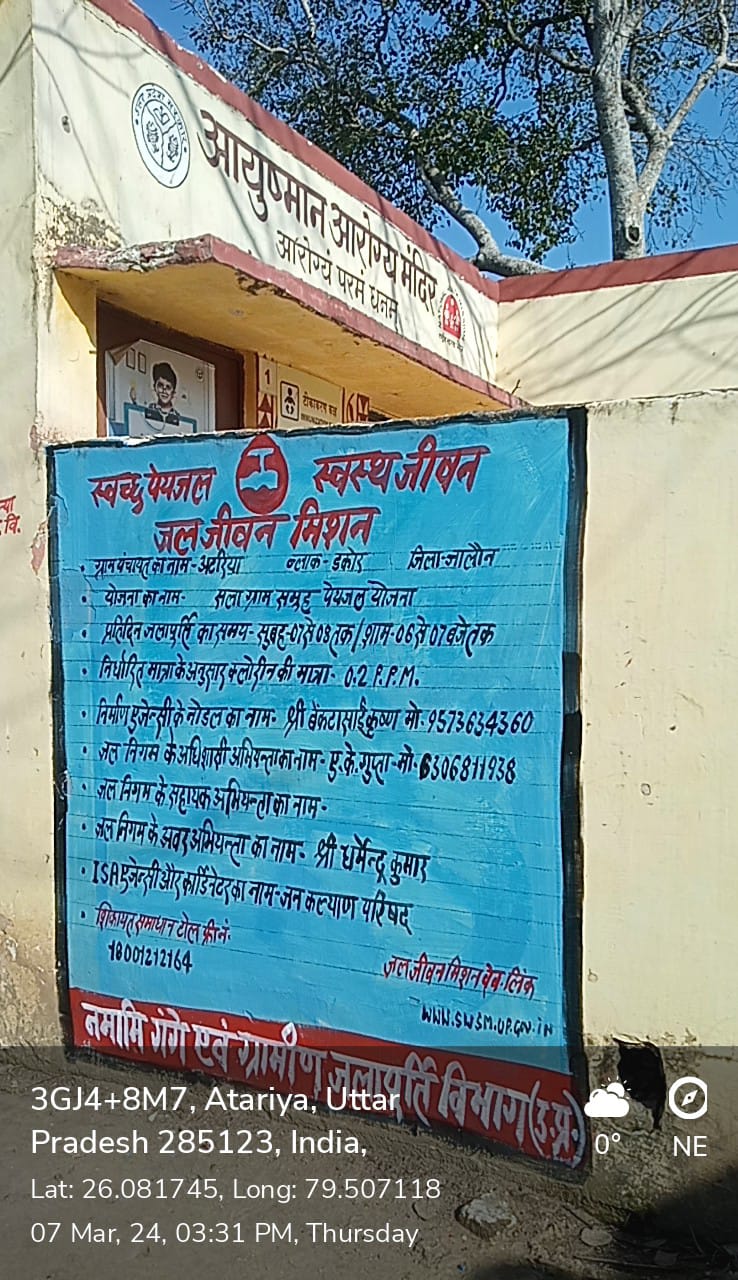 आयुष्मान आरोग्य मंदिर
आरोग्यं परमं धनम्
1
टीकाकरण कक्ष
स्वच्छ पेयजल स्वस्थ जीवन
जल जीवन मिशन
• ग्राम पंचायत का नाम- अटरिया ब्लाक- डकोर जिला- जालौन
• योजना का नाम- सला ग्राम समूह पेयजल योजना
• प्रतिदिन जलापूर्ति का समय- सुबह-07 से 08 तक/शाम-06 से 07 बजे तक
• निर्धारित मात्रा के अनुसार क्लोरीन की मात्रा- 0.2 P.P.M.
• निर्माण एजेन्सी के नोडल का नाम- श्री बेंकटा साई कृष्ण मो. 9573634360
• जल निगम के अधिशाषी अभियन्ता का नाम- ए.के. गुप्ता- मो- 6306811938
• जल निगम के सहायक अभियन्ता का नाम-
• जल निगम के अवर अभियन्ता का नाम- श्री धर्मेन्द्र कुमार
• ISA एजेन्सी और कार्डिनेटर का नाम- जन कल्याण परिषद्
• शिकायत समाधान टोल फ्री नं.
18001212164
जल जीवन मिशन वेब- लिंक
WWW.SWSM.UP.GOV.IN
नमामि गंगे एवं ग्रामीण जलापूर्ति विभाग (उ.प्र.)
3GJ4+8M7, Atariya, Uttar
Pradesh 285123, India,
0° NE
Lat: 26.081745, Long: 79.507118
07 Mar, 24, 03:31 PM, Thursday